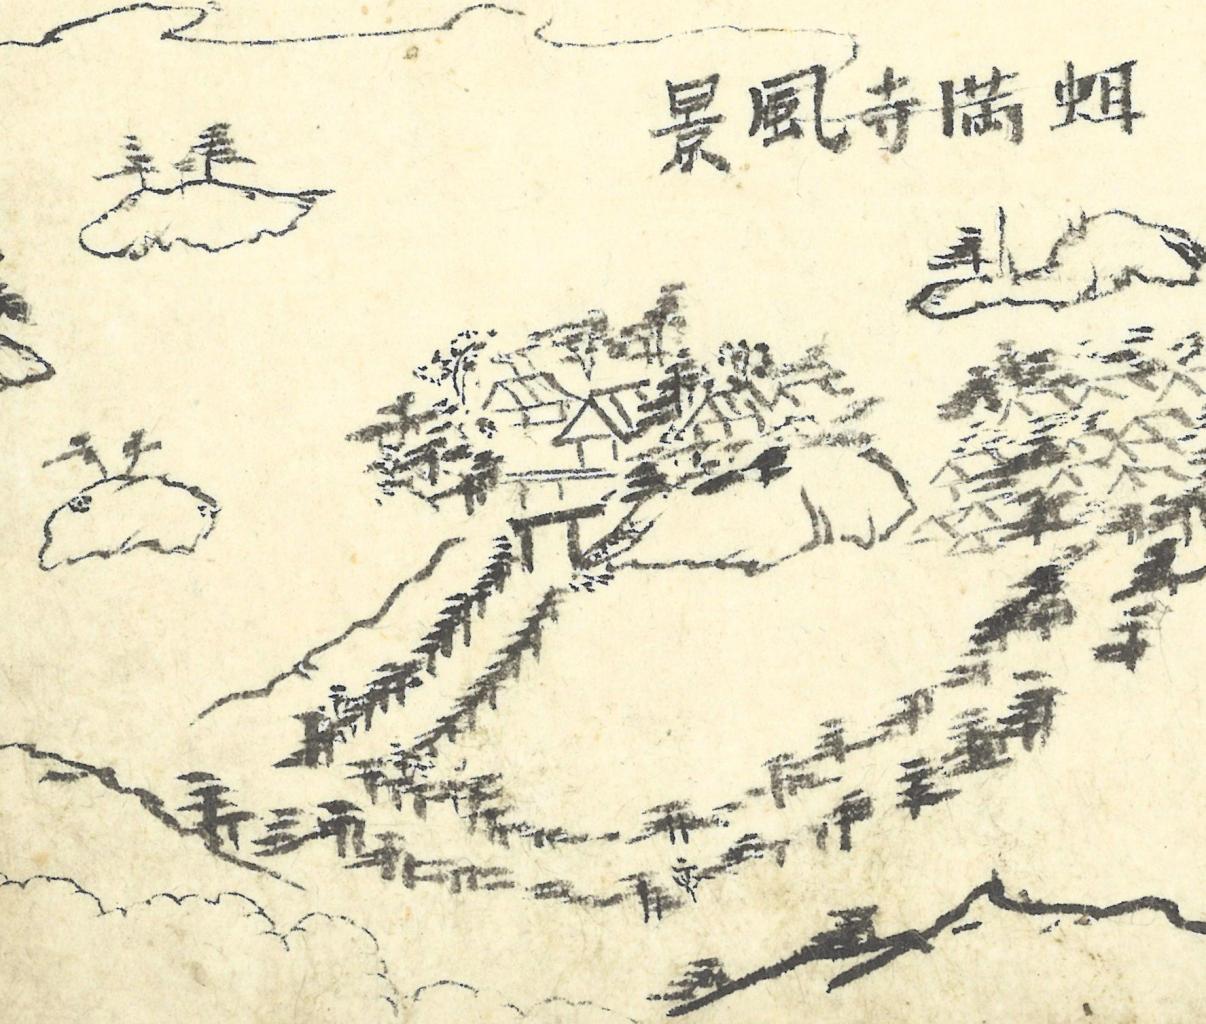 蚶満寺風景